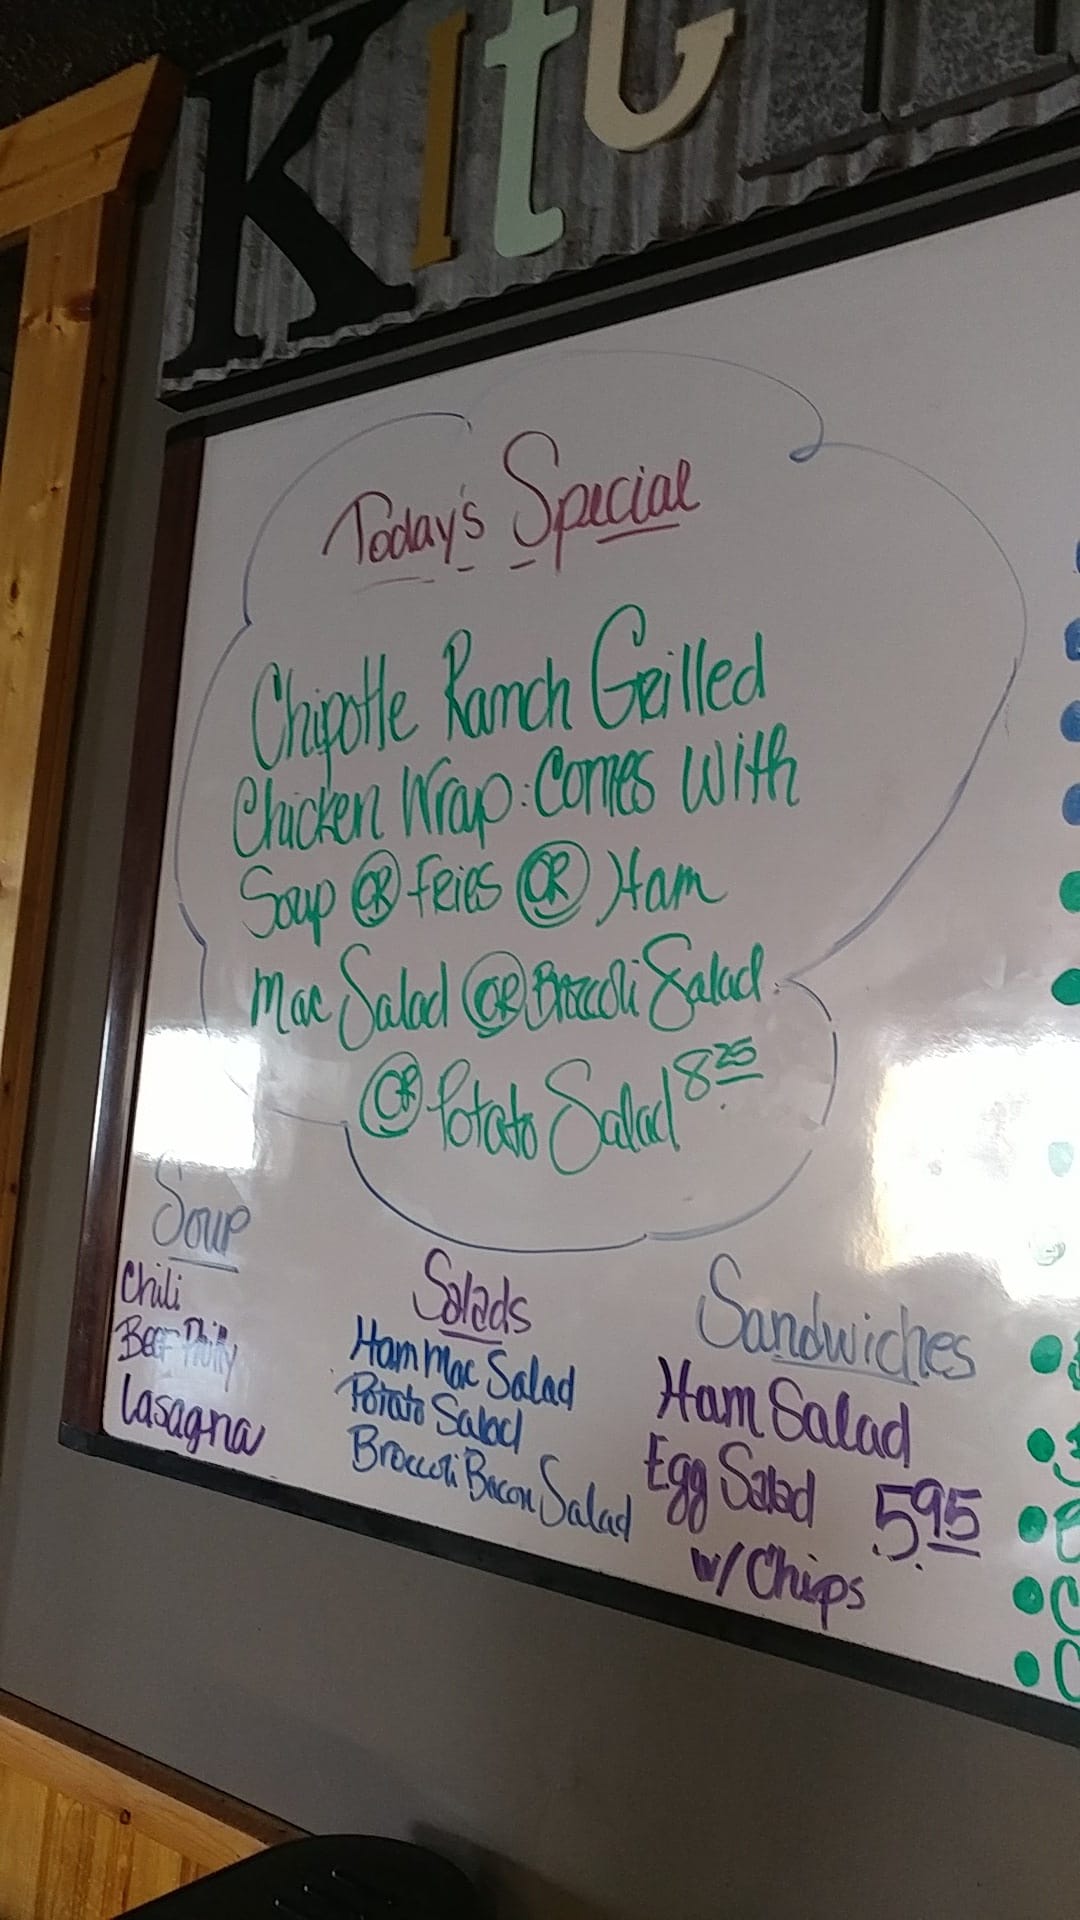 KitC
Today's Special
Chipotle Ranch Grilled
Chicken Wrap: Comes With
Soup OR Fries OR Ham
Mac Salad OR Broccoli Salad
OR Potato Salad 8.25
Soup
Chili
Beef Philly
Lasagna
Salads
Ham Mac Salad
Potato Salad
Broccoli Bacon Salad
Sandwiches
Ham Salad
Egg Salad 5.95
w/ Chips